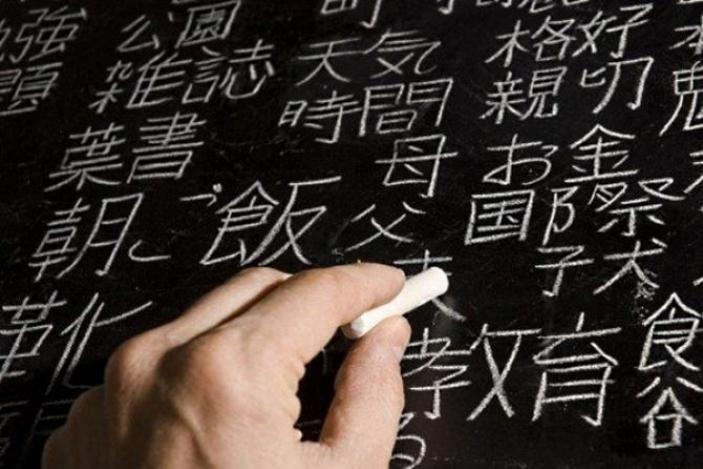 勉強 公園 町
題 雑誌 天気 格好
葉書 時間 親切
朝 ご飯 母 お金
父 国際 祭
子犬
革化 教育 食
谷
る